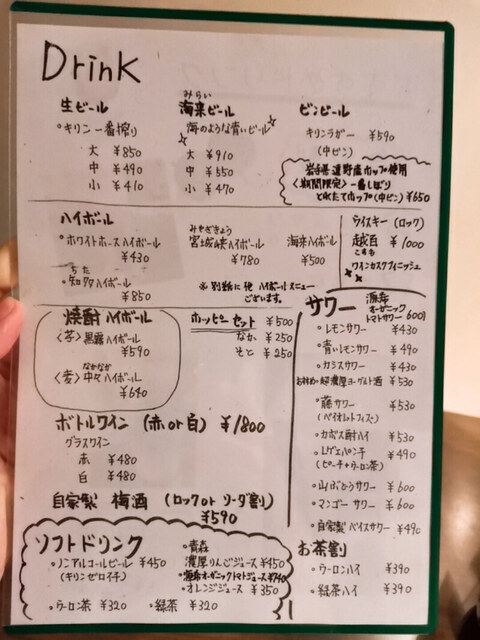 Drink
生ビール
・キリン一番搾り
大 ¥850
中 ¥490
小 ¥410
みらい
海来ビール
海のような青いビール
大 ¥910
中 ¥550
小 ¥470
ビンビール
キリンラガー ¥590
(中ビン)
岩手県遠野産ホップ使用
〈期間限定〉一番しぼり
とれたてホップ(中ビン) ¥650
ハイボール
・ホワイトホースハイボール
¥430
ちた
・知多ハイボール
¥850
みやぎきょう
宮城峡ハイボール
¥780
海来ハイボール
¥500
※別紙に他ハイボールメニュー
ございます。
ウイスキー(ロック)
越百 ¥1000
こすも
ワインカスクフィニッシュ
焼酎ハイボール
〈芋〉黒霧ハイボール
¥590
なかなか
〈麦〉中々ハイボール
¥640
ホッピーセット ¥500
なか ¥250
そと ¥250
サワー
オーガニック
トマトサワー 600
・レモンサワー ¥430
・青いレモンサワー ¥490
・カシスサワー ¥430
超濃厚ヨーグルト酒 ¥530
・藤サワー ¥530
(バイオレットフィズ)
・カボス酎ハイ ¥530
¥490
(ピーチ+ウーロン茶)
・山ぶどうサワー ¥600
・マンゴーサワー ¥600
・自家製バイスサワー ¥490
ボトルワイン (赤or白) ¥1800
グラスワイン
赤 ¥480
白 ¥480
自家製 梅酒 (ロックor ソーダ割)
¥590
ソフトドリンク
・ノンアルコールビール ¥450
(キリンゼロイチ)
・ウーロン茶 ¥320
・緑茶 ¥320
・青森
濃厚りんごジュース ¥450
オーガニックトマトジュース ¥740
・オレンジジュース ¥350
お茶割
・ウーロンハイ ¥390
・緑茶ハイ ¥390